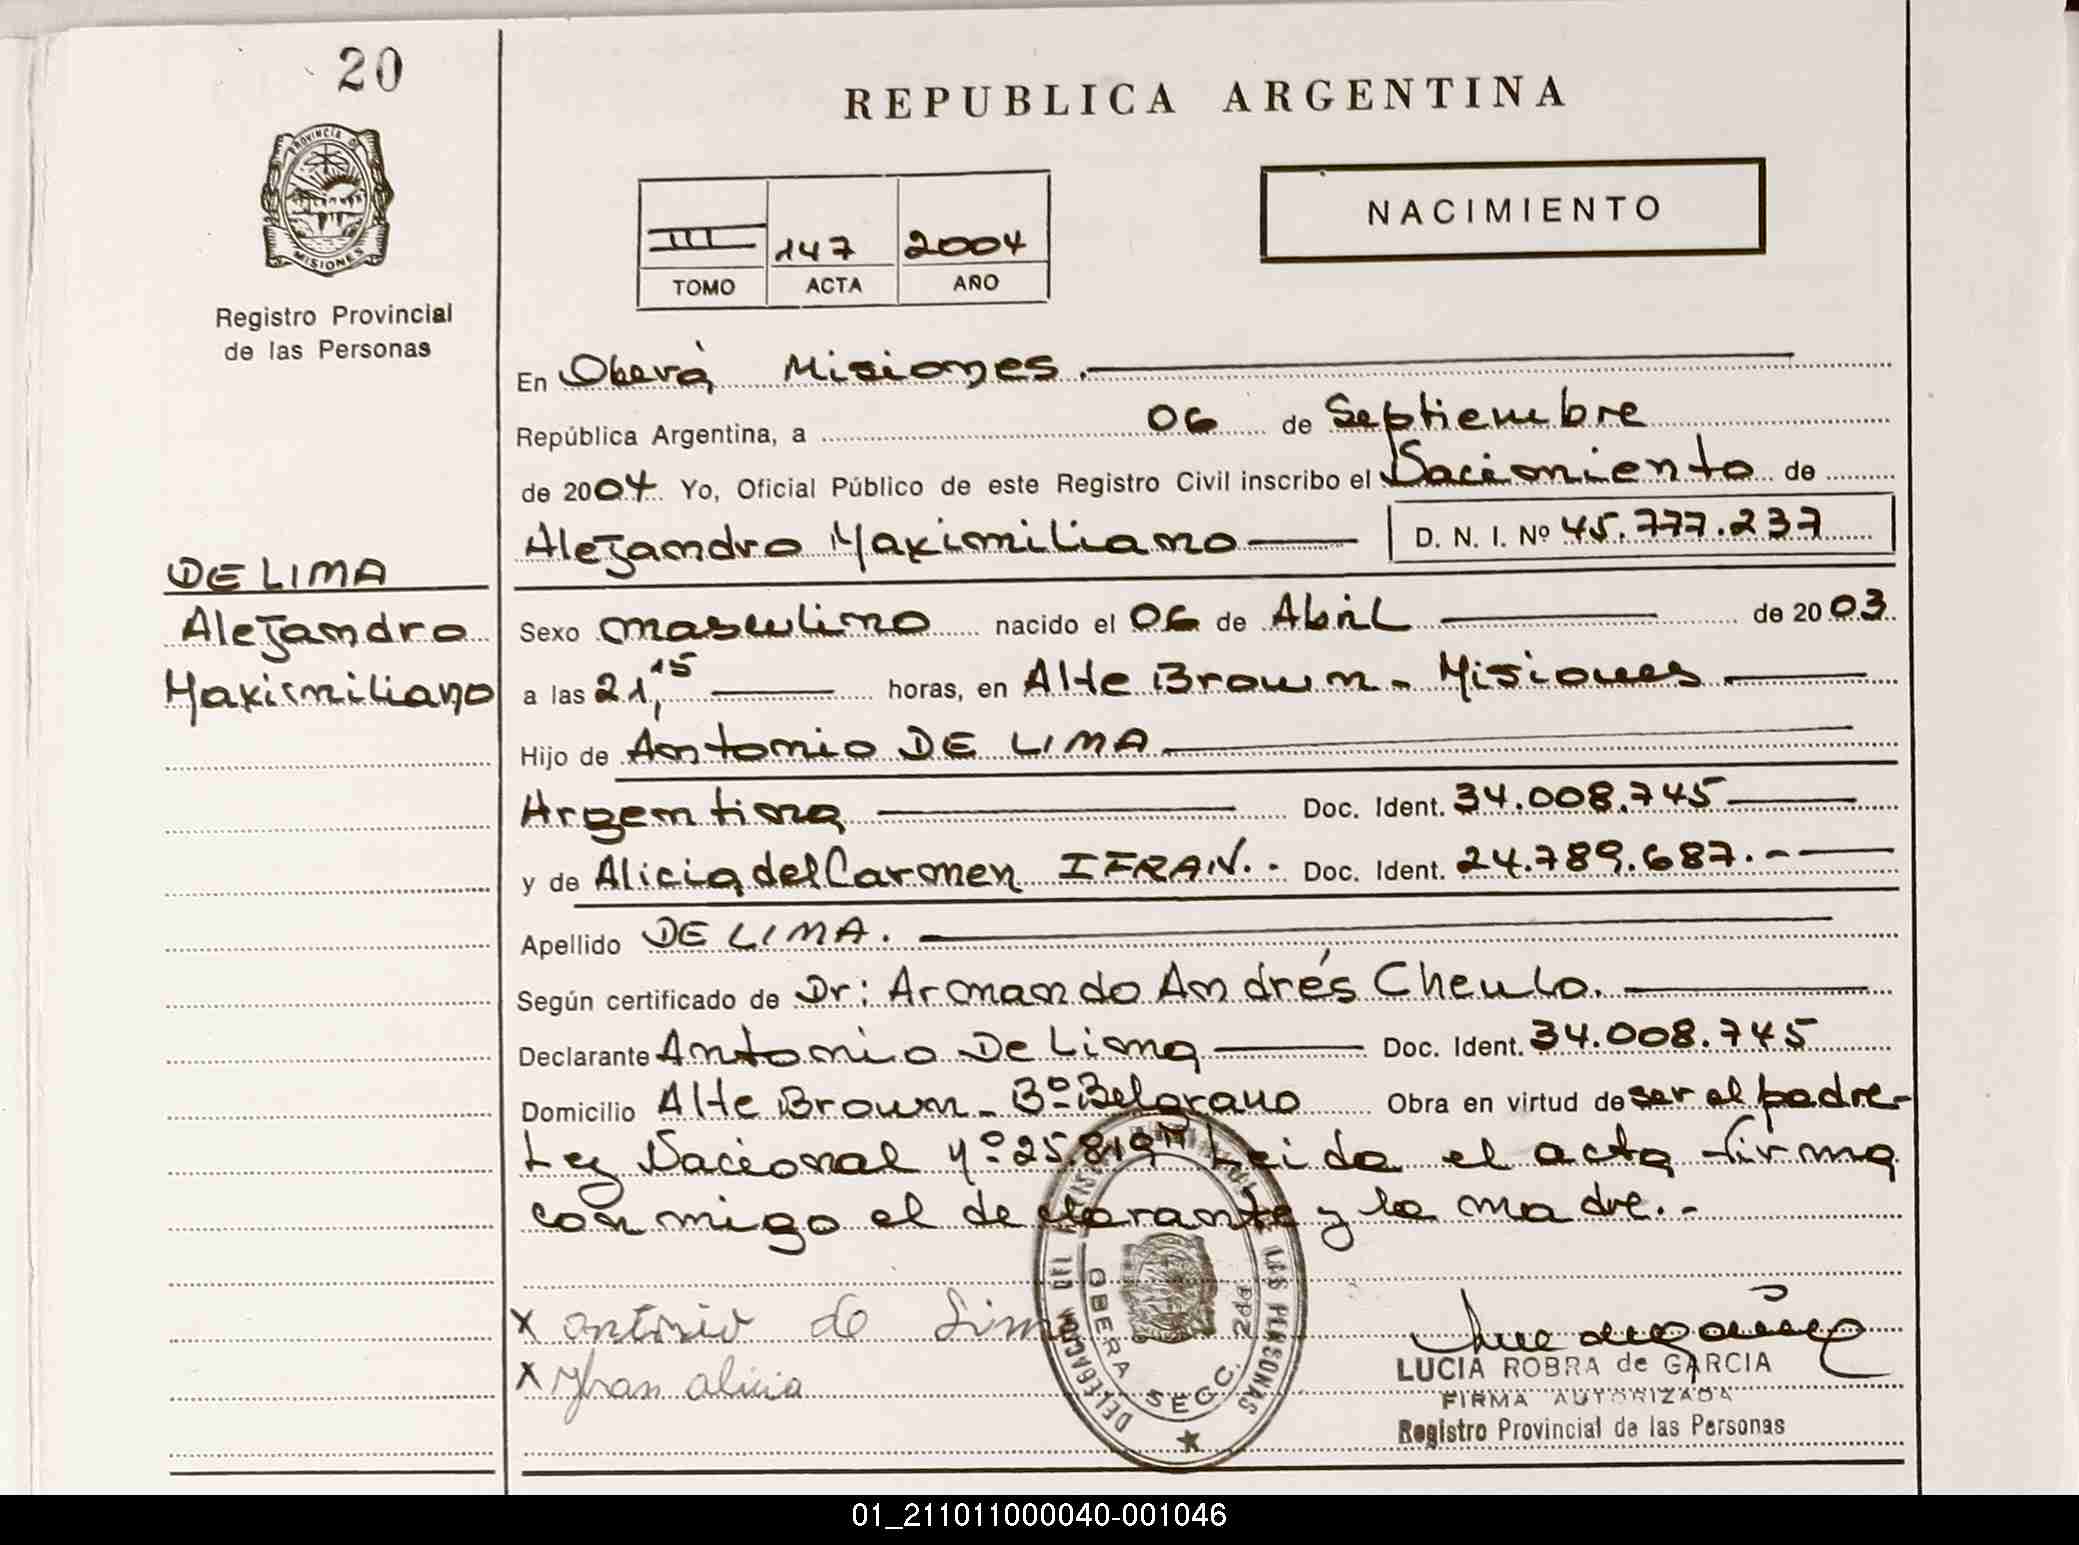 20
REPUBLICA ARGENTINA
PROVINCIA DE
MISIONES
NACIMIENTO
III 147 2004
TOMO ACTA AÑO
Registro Provincial
de las Personas
En Oberá Misiones.
República Argentina, a 06 de Septiembre
de 2004 Yo, Oficial Público de este Registro Civil inscribo el Nacimiento de
Alejandro Maximiliano D. N. I. Nº 45.777.237
DE LIMA
Alejandro
Maximiliano
Sexo masculino nacido el 06 de Abril de 2003
a las 21,15 horas, en Alte Brown - Misiones
Hijo de Antonio DE LIMA
Argentina Doc. Ident. 34.008.745
y de Alicia del Carmen IFRAN.- Doc. Ident. 24.789.687.-
Apellido DE LIMA.
Según certificado de Dr: Armando Andrés Cheulo.
Declarante Antonio De Lima Doc. Ident. 34.008.745
Domicilio Alte Brown - Bº Belgrano Obra en virtud de ser el padre-
Ley Nacional Nº 25.819" Leida el acta firma
conmigo el declarante y la madre.-
x antonio de Lima
x yfran alicia
DELEGACION DEL REGISTRO PROVINCIAL DE LAS PERSONAS
OBERA SECC. 2da
LUCIA ROBRA de GARCIA
FIRMA AUTORIZADA
Registro Provincial de las Personas
01_211011000040-001046